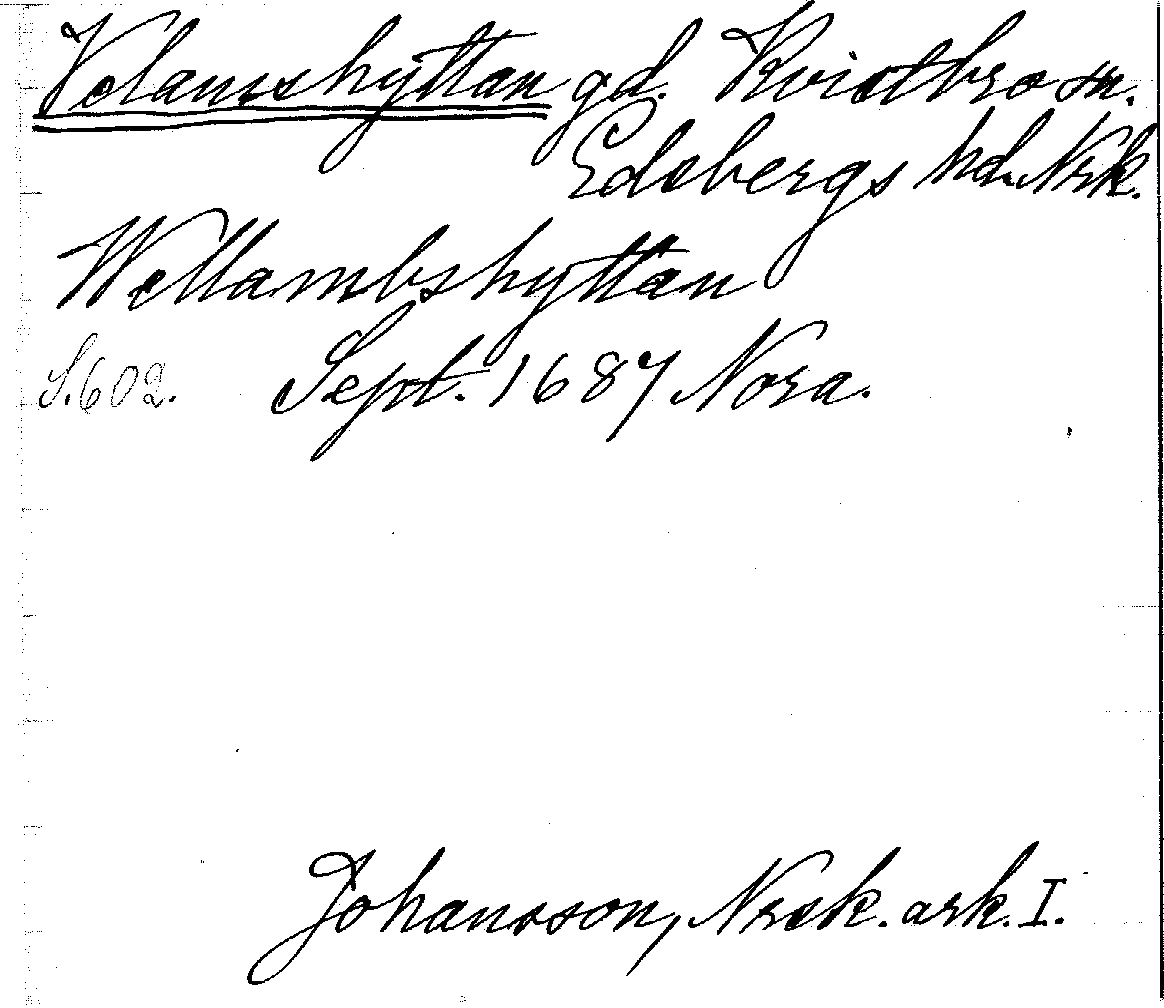 Velamshyttan gd. Kvistbro sn.
Edsbergs hd. Nrk.
Wellambshyttan
S. 602. Sept. 1687 Nora.
Johansson, Nrsk. ark. I.